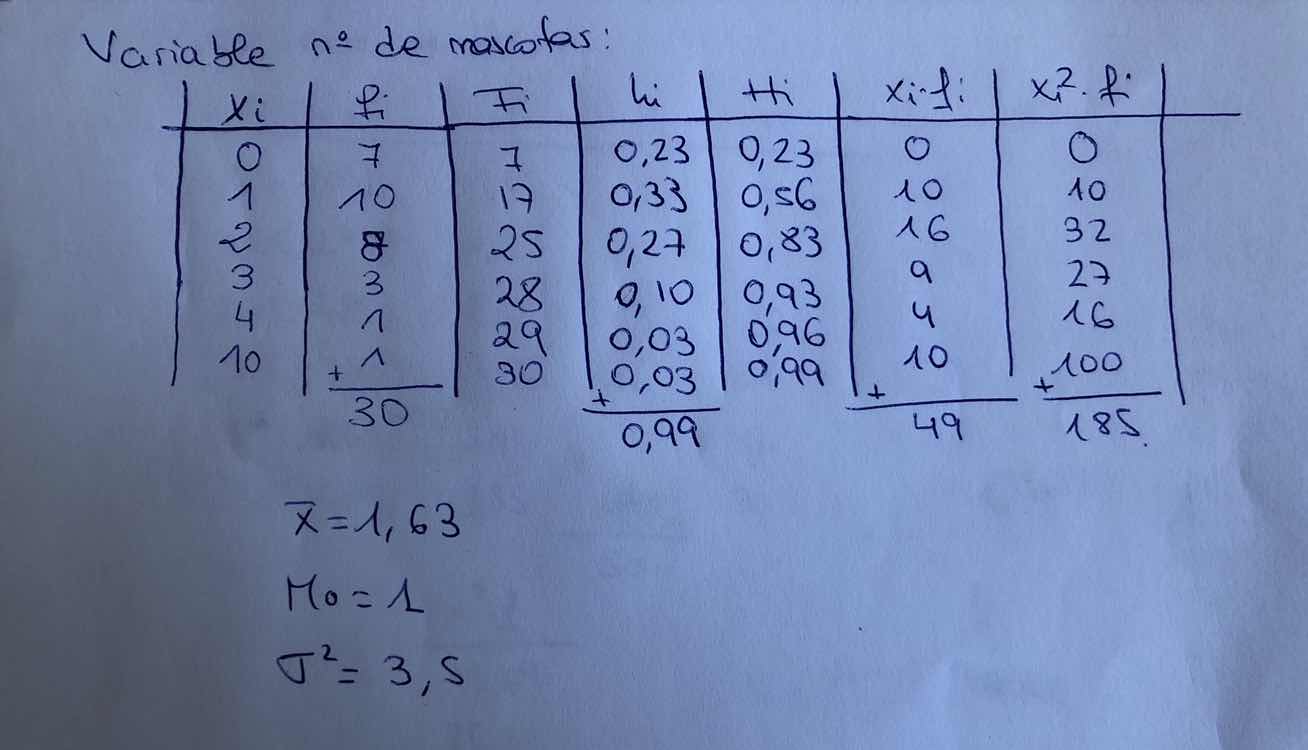 Variable nº de mascotas:
xi fi Fi hi Hi xi·fi xi²·fi
0 7 7 0,23 0,23 0 0
1 10 17 0,33 0,56 10 10
2 8 25 0,27 0,83 16 32
3 3 28 0,10 0,93 9 27
4 1 29 0,03 0,96 4 16
10 +1 30 +0,03 0,99 +10 +100
30 0,99 49 185.
x̄=1,63
Mo=1
σ²=3,5